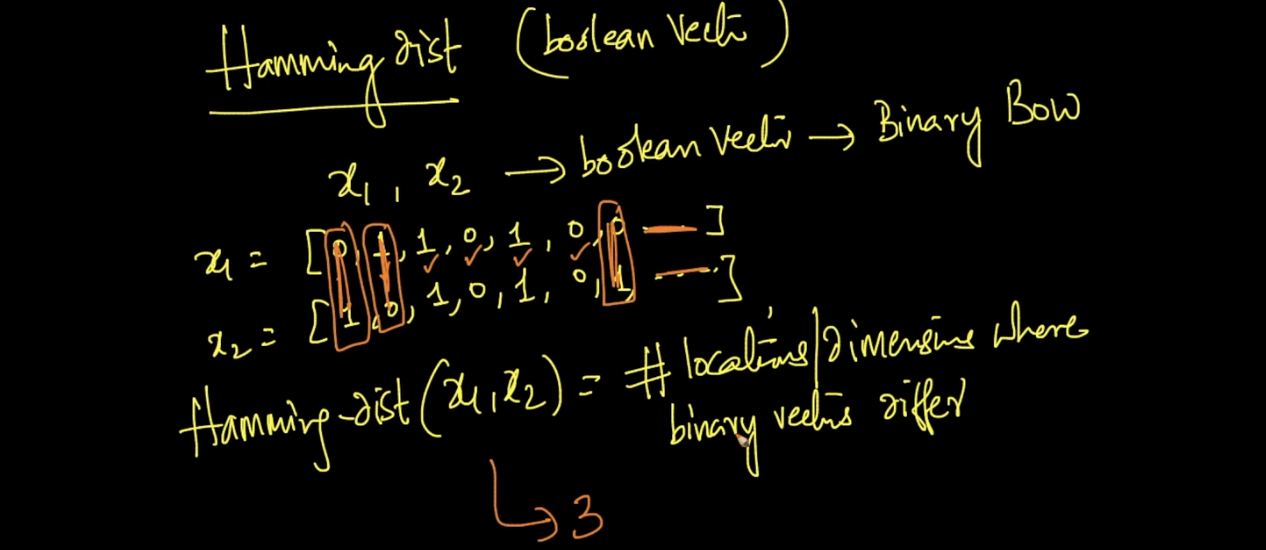 Hamming dist (boolean vector)
x₁, x₂ → boolean vector → Binary BOW
x₁ = [0, 1, 1, 0, 1, 0, 0, — ]
x₂ = [1, 0, 1, 0, 1, 0, 1, — ]
Hamming-dist(x₁, x₂) = # locations/dimensions where
binary vectors differ
↳ 3